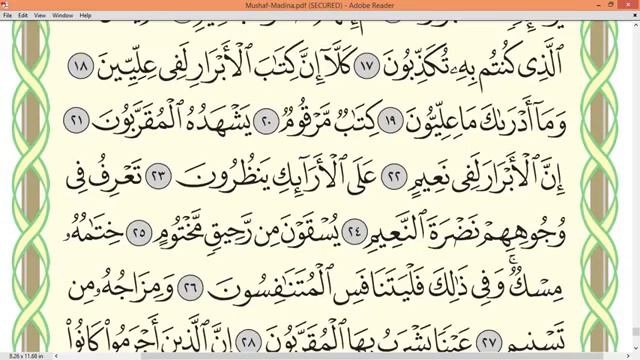 Mushaf-Madina.pdf (SECURED) - Adobe Reader
File Edit View Window Help
ٱلَّذِى كُنتُم بِهِۦ تُكَذِّبُونَ ١٧ كَلَّآ إِنَّ كِتَٰبَ ٱلْأَبْرَارِ لَفِى عِلِّيِّينَ ١٨
وَمَآ أَدْرَىٰكَ مَا عِلِّيُّونَ ١٩ كِتَٰبٌ مَّرْقُومٌ ٢٠ يَشْهَدُهُ ٱلْمُقَرَّبُونَ ٢١
إِنَّ ٱلْأَبْرَارَ لَفِى نَعِيمٍ ٢٢ عَلَى ٱلْأَرَآئِكِ يَنظُرُونَ ٢٣ تَعْرِفُ فِى
وُجُوهِهِمْ نَضْرَةَ ٱلنَّعِيمِ ٢٤ يُسْقَوْنَ مِن رَّحِيقٍ مَّخْتُومٍ ٢٥ خِتَٰمُهُۥ
مِسْكٌ ۚ وَفِى ذَٰلِكَ فَلْيَتَنَافَسِ ٱلْمُتَنَٰفِسُونَ ٢٦ وَمِزَاجُهُۥ مِن
تَسْنِيمٍ ٢٧ عَيْنًا يَشْرَبُ بِهَا ٱلْمُقَرَّبُونَ ٢٨ إِنَّ ٱلَّذِينَ أَجْرَمُوا۟ كَانُوا۟
8.26 x 11.68 in